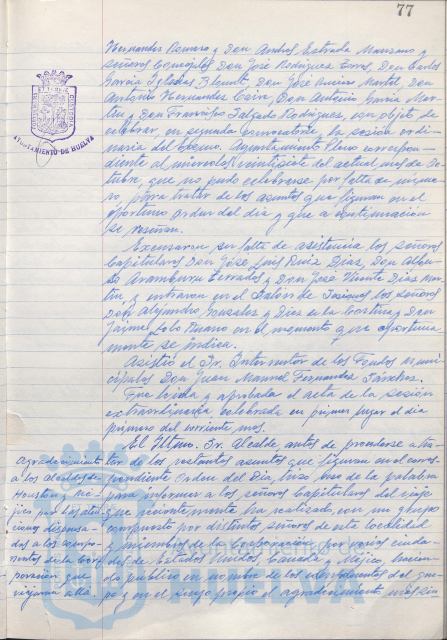 77
Hernandez Romero y Don Andres Estrada Manzano y
señores Concejales Don José Rodriguez Don Carlos
Garcia Iglesias Don José Muñoz Martel Don
Antonio Hernandez Don Antonio Garcia Mar-
tin y Don Francisco Salgado Rodriguez, con objeto de
celebrar, en segunda convocatoria, la sesión ordi-
naria del Excmo. Ayuntamiento Pleno correspon-
diente al miercoles veintisiete del actual mes de Oc-
tubre, que no pudo celebrarse por falta de núme-
ro, para tratar de los asuntos que figuran en el
oportuno orden del día y que a continuación
se reseñan.
Excusaron su falta de asistencia los señores
Capitulares Don José Luis Ruiz Diaz, Don Alber-
to Aramburu Terrados y Don José Vicente Diaz Mar-
tin y entraron en el Salón de Sesiones los señores
Don Alejandro Gonzalez y Diez de la Cortina y Don
Jaime Lobo en el momento que oportuna-
mente se indica.
Asistió el Sr. Interventor de los Fondos Muni-
cipales Don Juan Manuel Fernandez Sanchez.
Fue leida y aprobada el acta de la sesión
extraordinaria celebrada en primer lugar el día
primero del corriente mes.
El Iltmo. Sr. Alcalde antes de procederse a tra-
tar de los restantes asuntos que figuran en el corres-
pondiente Orden del Día, hizo uso de la palabra
para informar a los señores Capitulares del viaje
que recientemente ha realizado, con un grupo
compuesto por distintos señores de esta localidad
y miembros de la Corporación, por varias ciuda-
des de Estados Unidos, Canadá y Méjico, hacien-
do público en nombre de los componentes del gru-
po y en el suyo propio el agradecimiento más sin-
Agradecimiento
a los alcaldes de
Houston, Mé-
jico por las aten-
ciones dispensa-
das a los compo-
nentes de la Cor-
poración que
viajaron allá.
AYUNTAMIENTO DE HUELVA
Ayuntamiento de
HUELVA